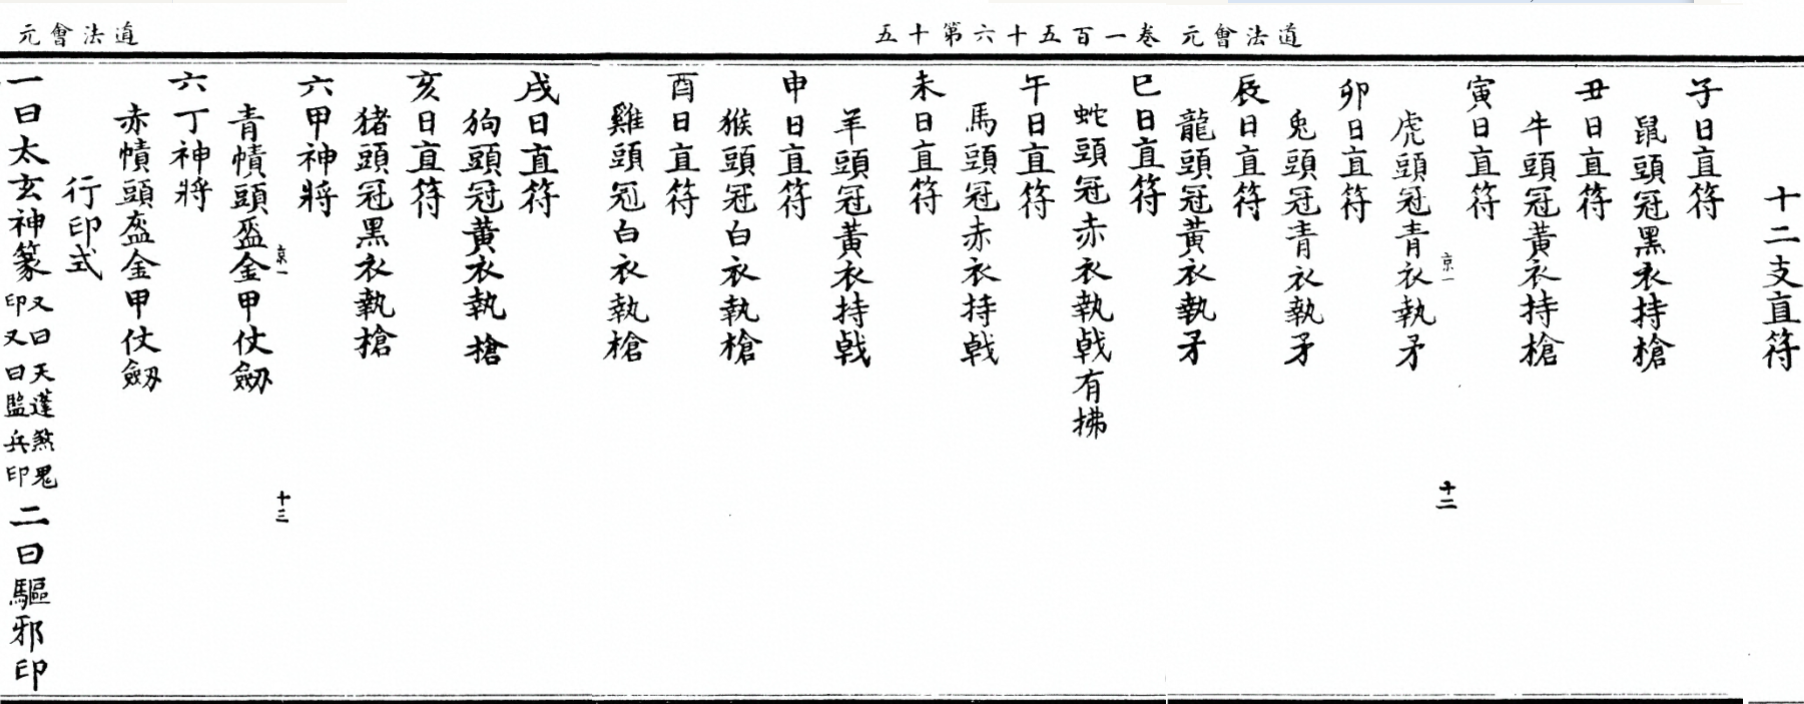 道法會元 卷一百五十六第十五
十二支直符
子日直符
鼠頭冠黑衣持槍
丑日直符
牛頭冠黃衣持槍
寅日直符
京一 十二
虎頭冠青衣執矛
卯日直符
兔頭冠青衣執矛
辰日直符
龍頭冠黃衣執矛
巳日直符
蛇頭冠赤衣執戟有拂
午日直符
馬頭冠赤衣持戟
未日直符
羊頭冠黃衣持戟
申日直符
猴頭冠白衣執槍
酉日直符
雞頭冠白衣執槍
戌日直符
狗頭冠黃衣執槍
亥日直符
猪頭冠黑衣執槍
六甲神將
京一 十三
青幘頭盔金甲仗劒
六丁神將
赤幘頭盔金甲仗劒
行印式
道法會元
一曰太玄神篆又曰天蓬煞鬼印又曰監兵印二曰驅邪印